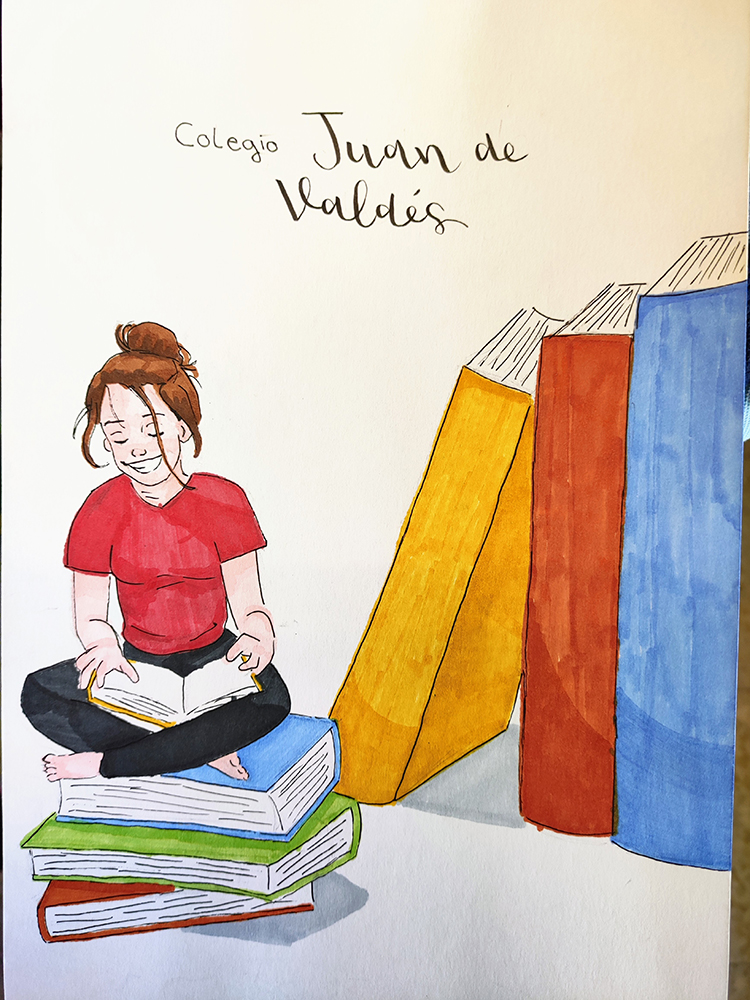 Colegio Juan de
Valdés